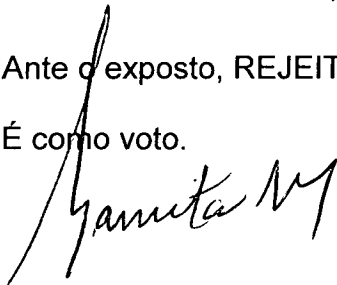 Ante o exposto, REJEIT
É como voto.